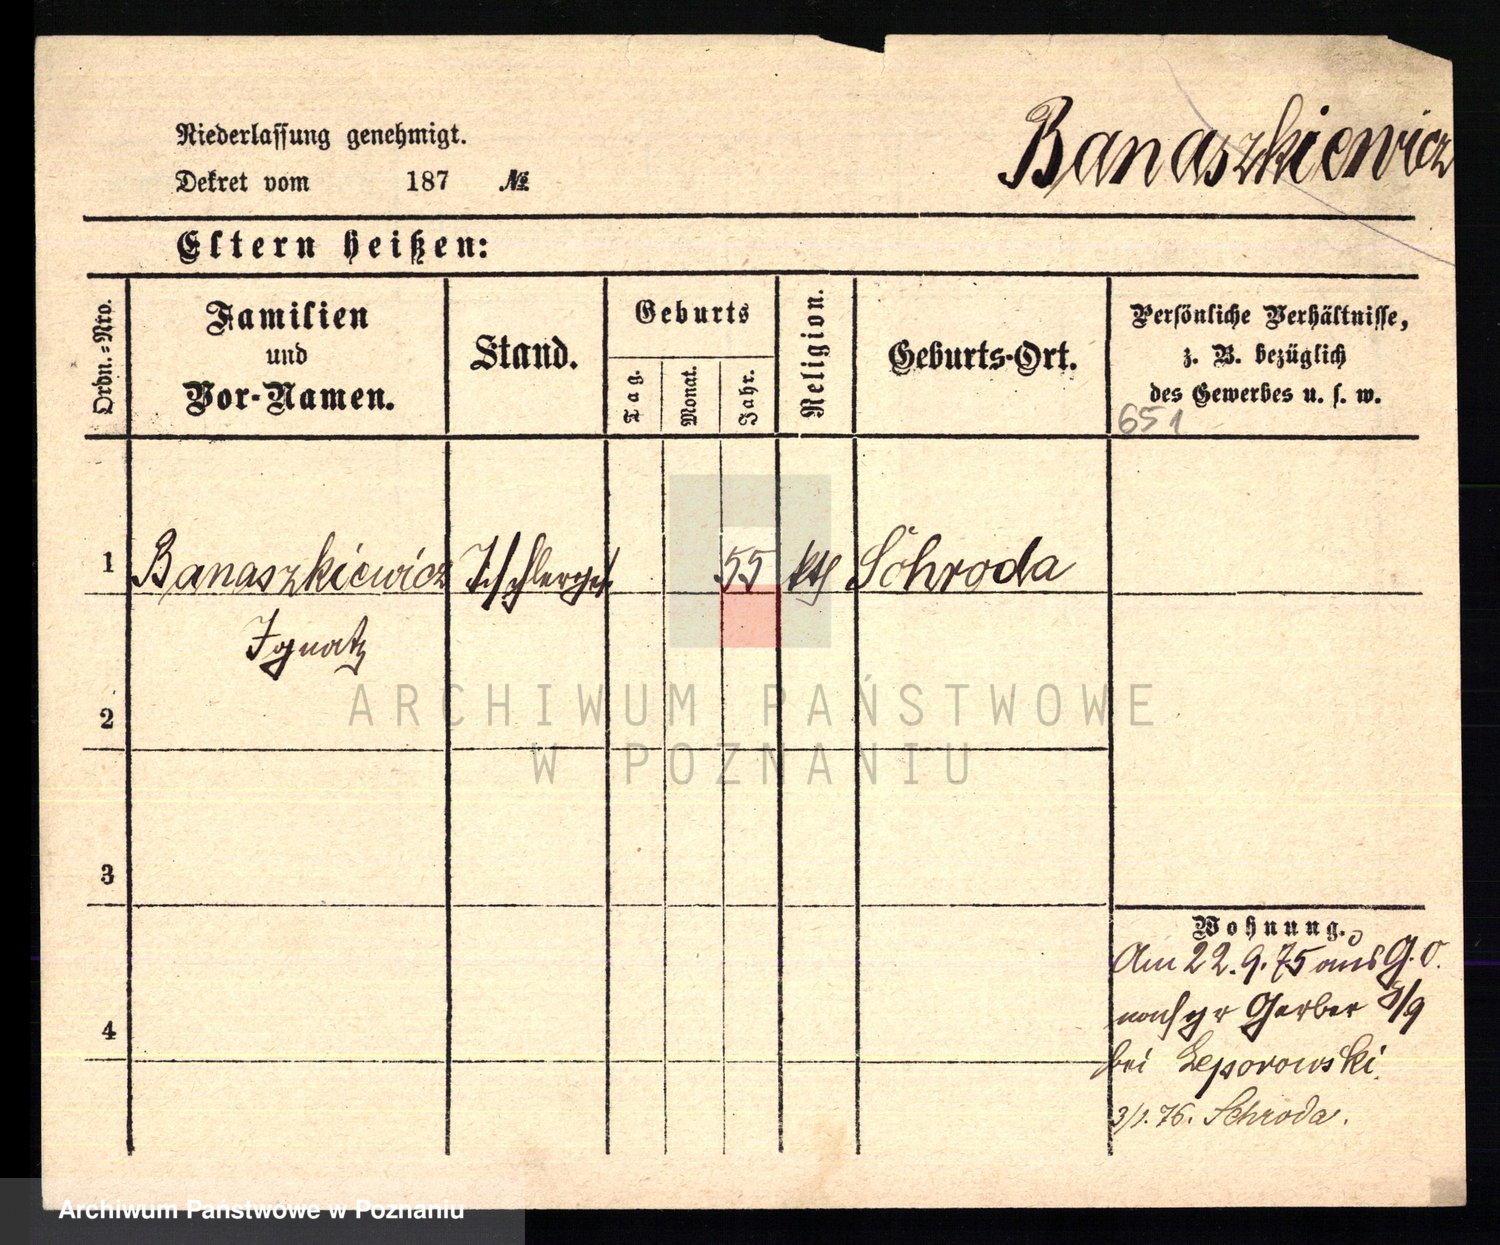 Banaszkiewicz
Niederlassung genehmigt.
Dekret vom 187 №
Eltern heißen:
Ordn.-Nro.
Familien
und
Vor-Namen.
Stand.
Geburts
Tag.
Monat.
Jahr.
Religion.
Geburts-Ort.
Persönliche Verhältnisse,
z. B. bezüglich
des Gewerbes u. s. w.
651
1 Banaszkiewicz Tischlerges 55 kth Schroda
Ignatz
ARCHIWUM PAŃSTWOWE
W POZNANIU
2
3
4
Wohnung.
Am 22.9.75 aus G. O.
nach gr Gerber 8/9
bei Leporowski
3/1.76. Schroda.
Archiwum Państwowe w Poznaniu